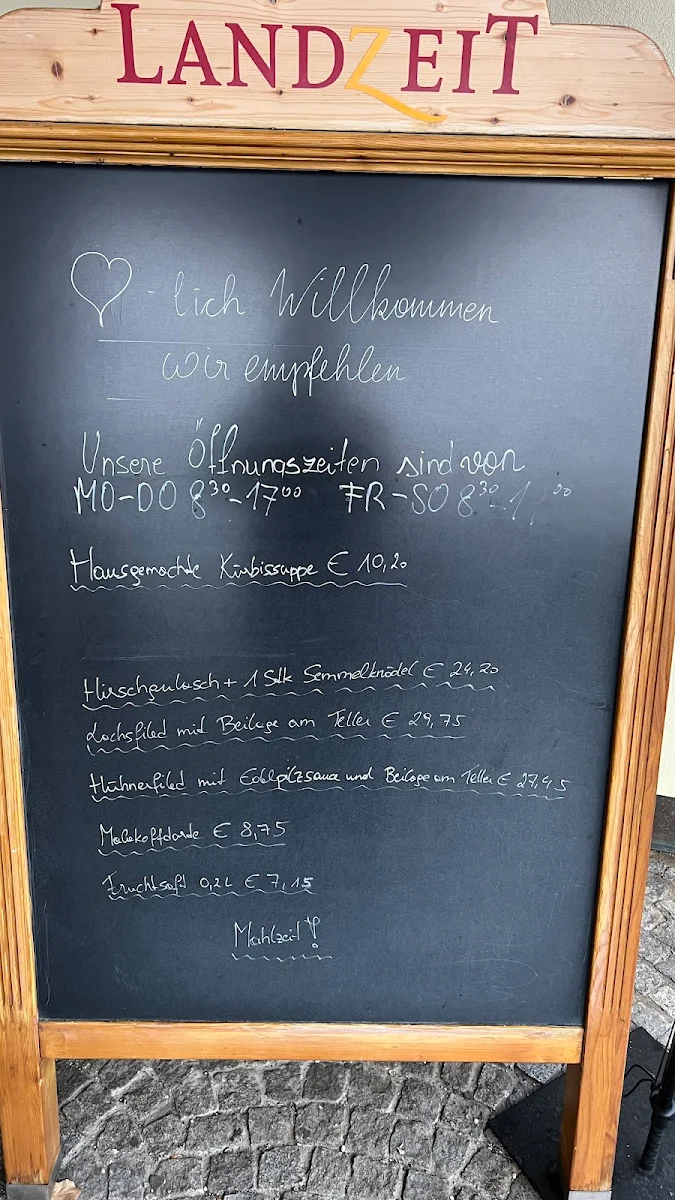 LANDZEIT
- lich Willkommen
wir empfehlen
Unsere Öffnungszeiten sind von
MO-DO 8³⁰-17⁰⁰ FR-SO 8³⁰-
Hausgemachte Kürbissuppe € 10,20
Hirschgulasch + 1 Stk Semmelknödel € 24,20
Lachsfiled mit Beilage am Teller € 29,75
Hühnerfiled mit Edelpilzsauce und Beilage am Teller € 27,45
€ 8,75
Fruchtsaft 0,2L € 7,15
Mahlzeit!